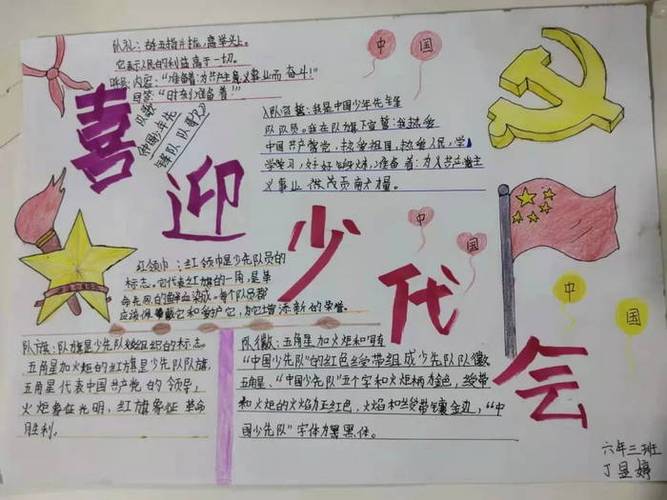 队礼：右手五指并拢，高举头上。
它表示人民的利益高于一切。
呼号：内容："准备着：为共产主义事业而奋斗！"
回答："时刻准备着！"
队歌
《中国少年先
锋队队歌》
中 国
入队宣誓：我是中国少年先锋
队队员。我在队旗下宣誓：我热爱
中国共产党，热爱祖国，热爱人民，
学习，好好锻炼，准备着：为共产主
义事业 力量。
喜迎少代会
中 国
红领巾：红领巾是少先队员的
标志。它代表红旗的一角，是革
命先烈的鲜血染成。每个队员都
应该佩戴它和爱护它，为它增添新的荣誉。
中 国
队旗：队旗是少先队组织的标志。
五角星加火炬的红旗是少先队队旗。
五角星代表中国共产党的领导，
火炬象征光明，红旗象征革命
胜利。
队徽：五角星加火炬和写有
"中国少先队"的红色绶带组成少先队队徽
五角星、"中国少先队"五个字和火炬柄为金色，绶带
和火炬的火焰为正红色，火焰和绶带镶金边，"中
国少先队"字体为黑体。
六年三班
丁 婷